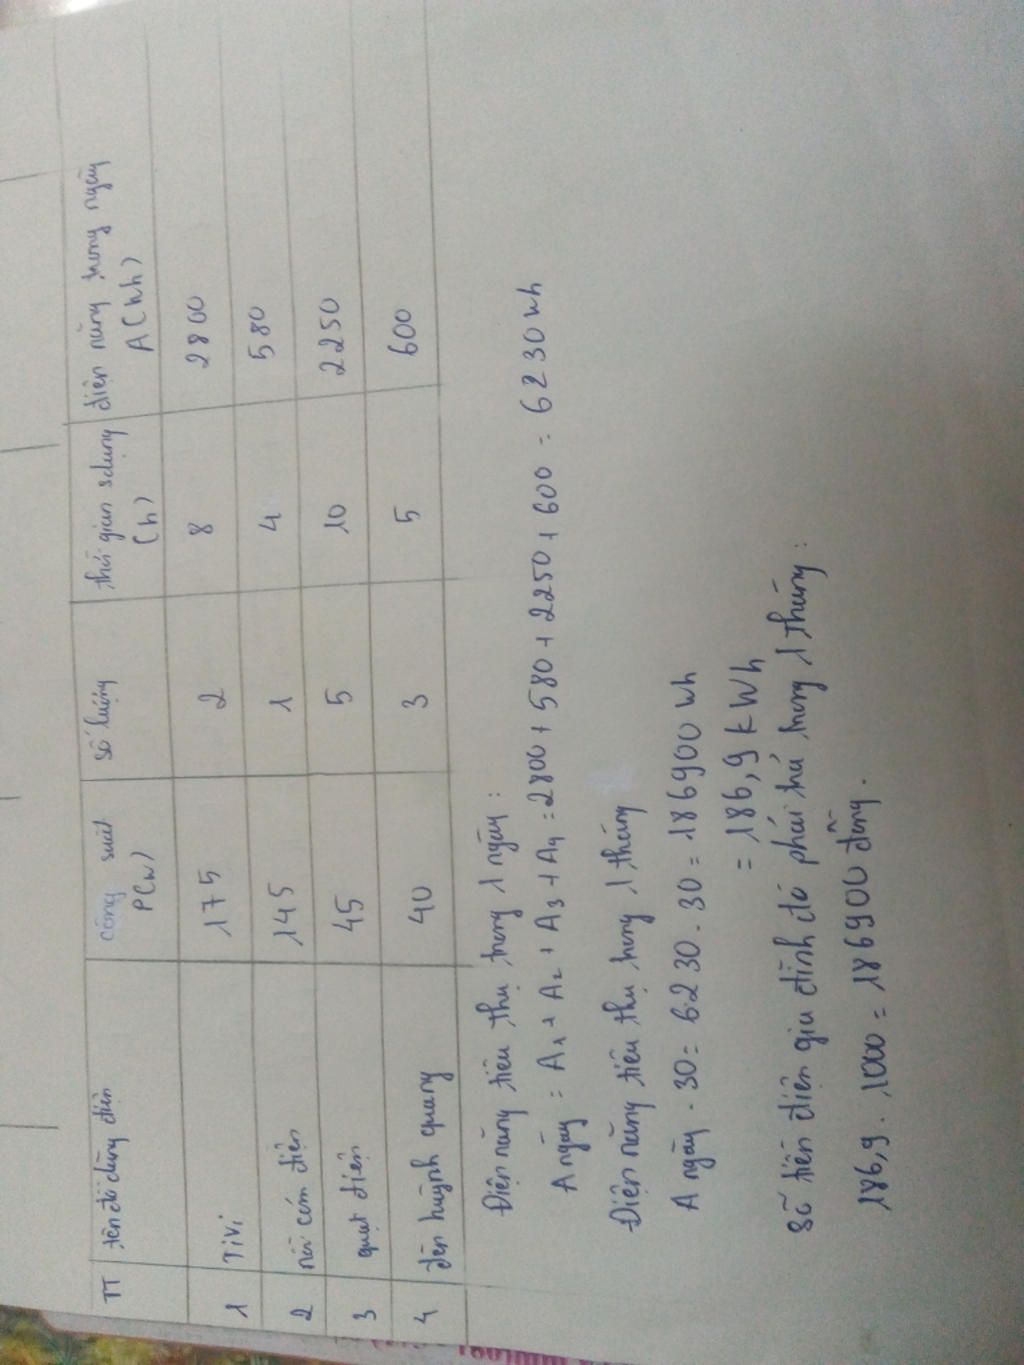 TT tên đồ dùng điện công suất P(W) số lượng thời gian sdụng (h) điện năng trong ngày A(Wh)
1 Tivi 175 2 8 2800
2 nồi cơm điện 145 1 4 580
3 quạt điện 45 5 10 2250
4 đèn huỳnh quang 40 3 5 600
Điện năng tiêu thụ trong 1 ngày :
A ngày = A1 + A2 + A3 + A4 = 2800 + 580 + 2250 + 600 = 6230 Wh
Điện năng tiêu thụ trong 1 tháng
A ngày . 30 = 6230 . 30 = 186900 Wh
= 186,9 kWh
Số tiền điện gia đình đó phải trả trong 1 tháng :
186,9 . 1000 = 186900 đồng.